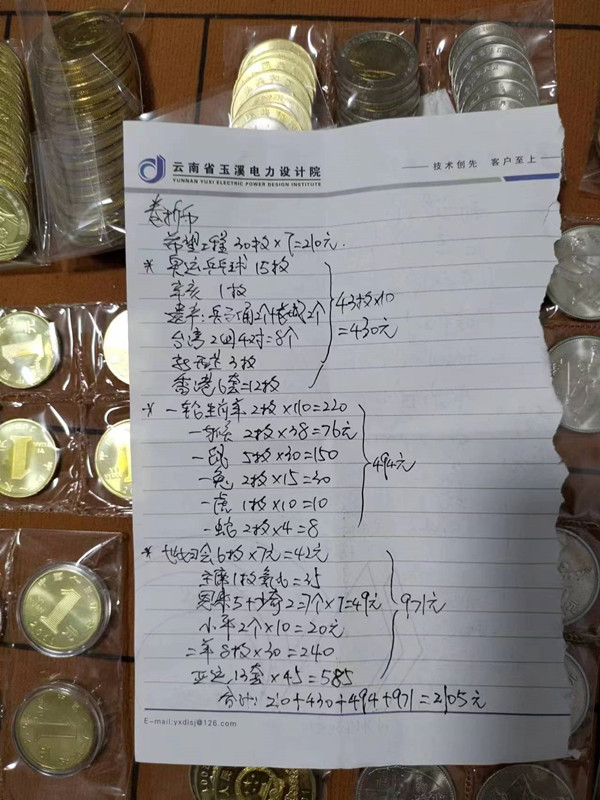 云南省玉溪电力设计院
YUNNAN YUXI ELECTRIC POWER DESIGN INSTITUTE
技术创先 客户至上
卷拆币
希望工程 30枚×7=210元.
* 奥运乒乓球 15枚
辛亥 1枚
遗产: 兵马俑2个 长城2个
台湾 2回4对=8个
3枚
香港6套=12枚
43枚×10
=430元
* 一轮生肖羊 2枚×110=220
一猴 2枚×38=76元
一 5枚×30=150
一兔 2枚×15=30
一虎 1枚×10=10
一蛇 2枚×4=8
494元
* 6枚×7元=42元
1枚 =35
恩来5+少奇2=7个×7=49元
小平2个×10=20元
二羊8枚×30=240
亚运13套×45=585
971元
合计: 210+430+494+971=2105元
E-mail:yxdisj@126.com
1
1
1
1
1
1